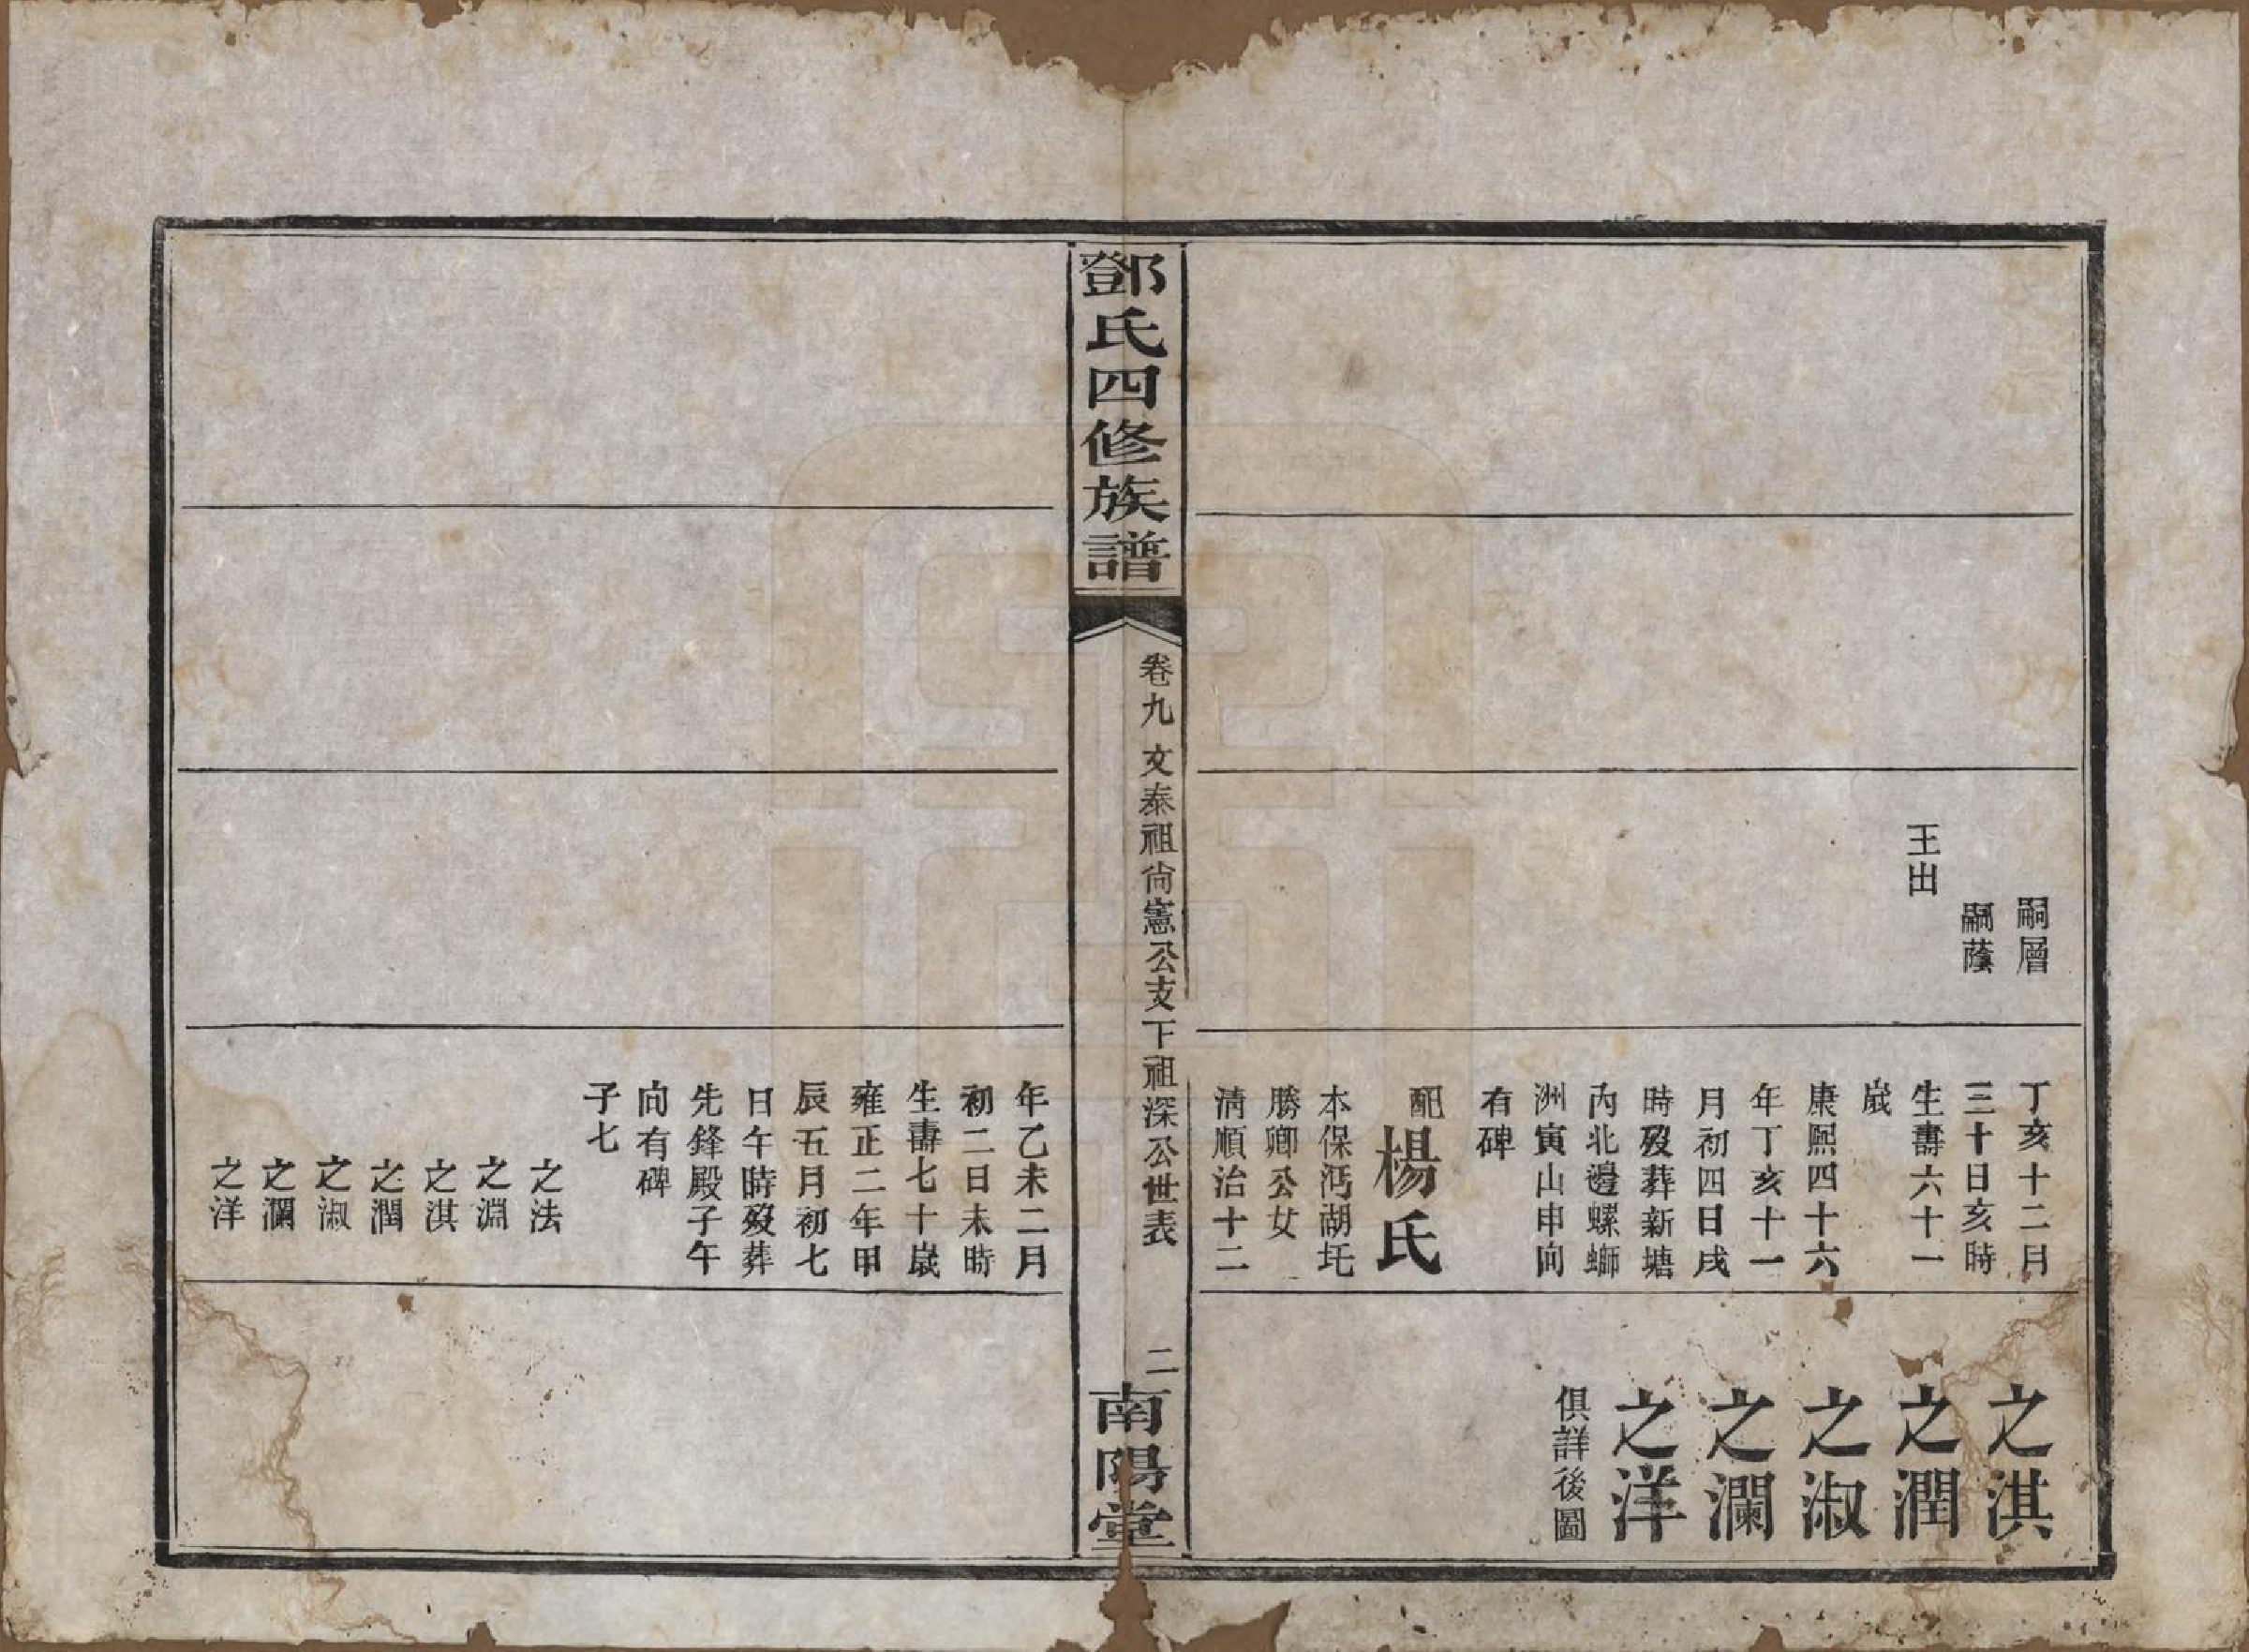 嗣層
嗣蔭
王出
丁亥十二月
三十日亥時
生壽六十一
歲
康熙四十六
年丁亥十一
月初四日戌
時歿葬新塘
內北邊螺螄
洲寅山申向
有碑
配楊氏
本保沔湖圫
勝卿公女
淸順治十二
之淇
之潤
之淑
之瀾
之洋
俱詳後圖
鄧氏四修族譜
卷九 文泰祖尙憲公支下祖深公世表
二
南陽堂
年乙未二月
初二日未時
生壽七十歲
雍正二年甲
辰五月初七
日午時歿葬
先鋒殿子午
向有碑
子七
之法
之淵
之淇
之潤
之淑
之瀾
之洋